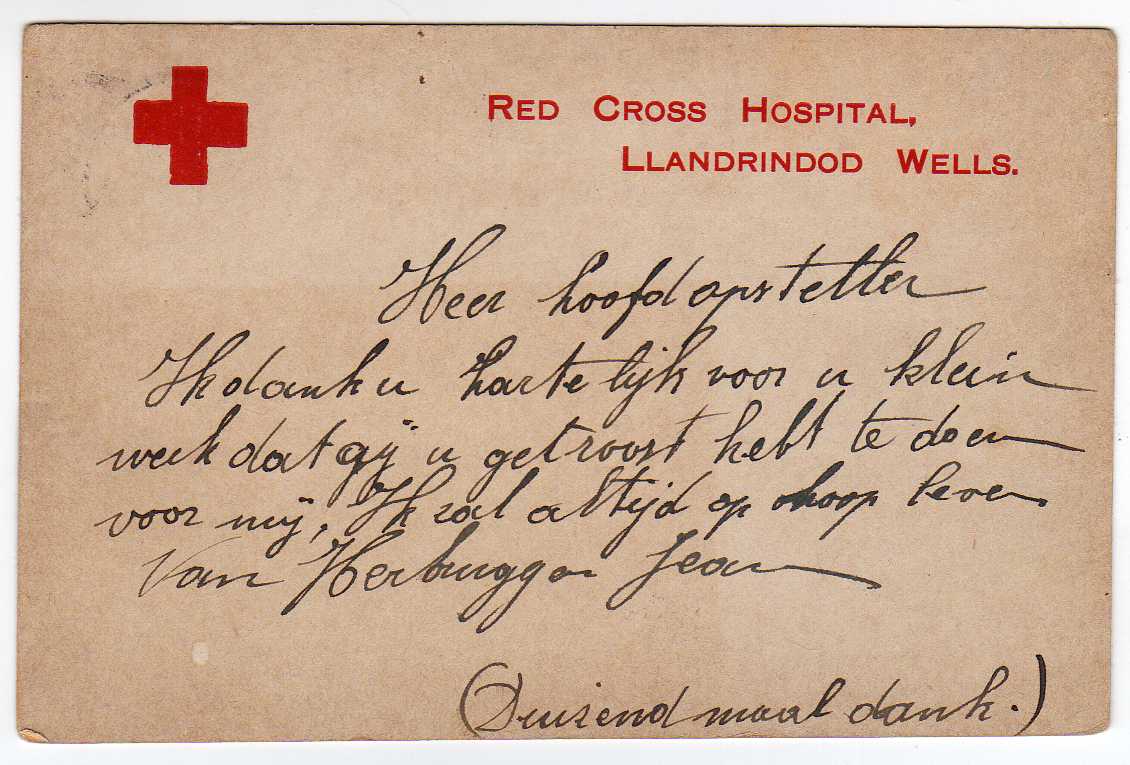 RED CROSS HOSPITAL,
LLANDRINDOD WELLS.
Heer hoofdopsteller
Ik dank u hartelijk voor u klein
werk dat gij u getroost hebt te doen
voor mij, Ik zal altijd op hoop leven
Van Herbruggen Jean
(Duizend maal dank.)